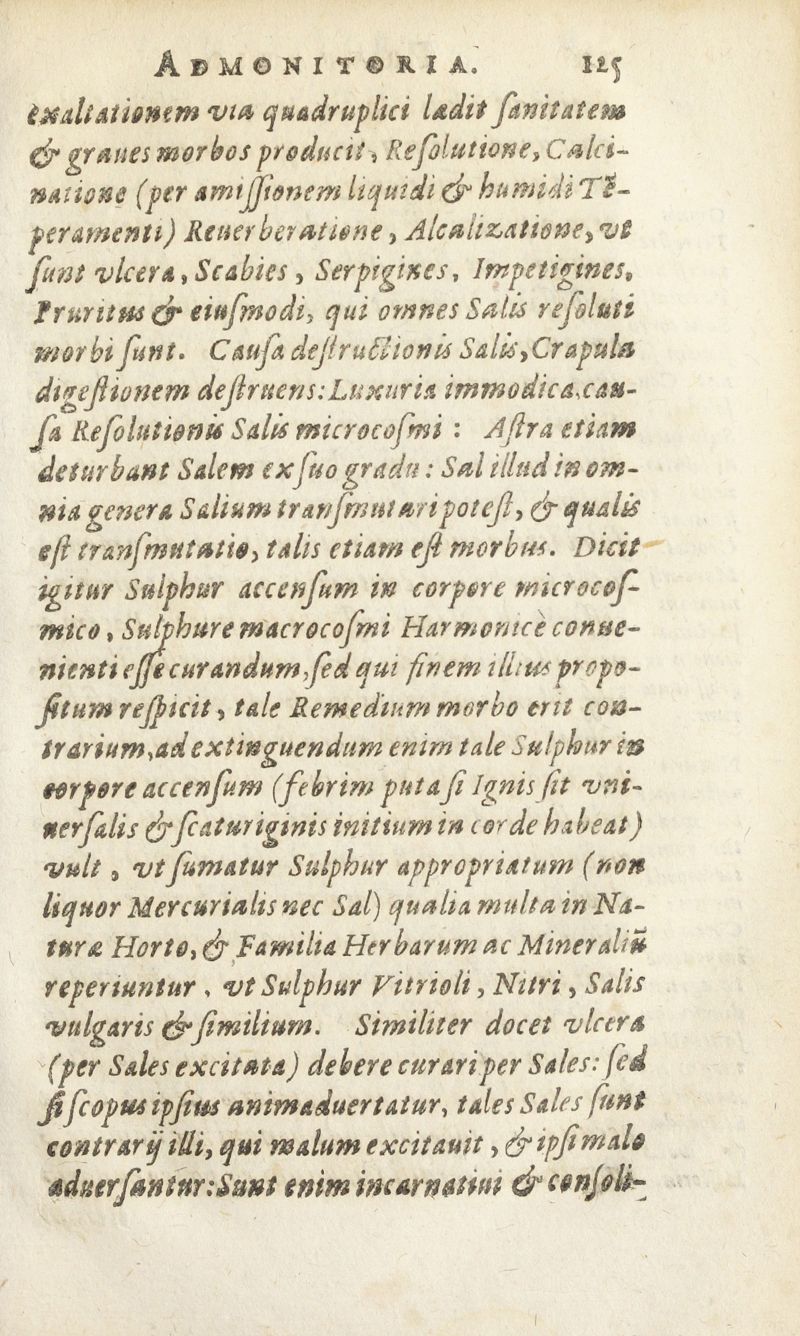 ADMONITORIA. 125
exaltationem via quadruplici lædit ſanitatem
& graues morbos producit, Reſolutione, Calci-
natione (per amiſſionem liquidi & humidi Tē-
peramenti) Reuerberatione, Alcalizatione, vt
ſunt vlcera, Scabies, Serpigines, Impetigines,
Pruritus & eiuſmodi, qui omnes Salis reſoluti
morbi ſunt. Cauſa deſtructionis Salis, Crapula
digeſtionem deſtruens: Luxuria immodica, cau-
ſa Reſolutionis Salis microcoſmi : Aſtra etiam
deturbant Salem ex ſuo gradu : Sal illud in om-
nia genera Salium tranſmutari poteſt, & qualis
eſt tranſmutatio, talis etiam eſt morbus. Dicit
igitur Sulphur accenſum in corpore microcoſ-
mico, Sulphure macrocoſmi Harmonicè conue-
nienti eſſe curandum, ſed qui finem illius propo-
ſitum reſpicit, tale Remedium morbo erit con-
trarium, ad extinguendum enim tale Sulphur in
corpore accenſum (febrim puta ſi Ignis ſit vni-
uerſalis & ſcaturiginis initium in corde habeat)
vult, vt ſumatur Sulphur appropriatum (non
liquor Mercurialis nec Sal) qualia multa in Na-
turæ Horto, & Familia Herbarum ac Mineraliū
reperiuntur, vt Sulphur Vitrioli, Nitri, Salis
vulgaris & ſimilium. Similiter docet vlcera
(per Sales excitata) debere curari per Sales: ſed
ſi ſcopus ipſius animaduertatur, tales Sales ſunt
contrarij illi, qui malum excitauit, & ipſi malo
aduerſantur: Sunt enim incarnatiui & conſoli-